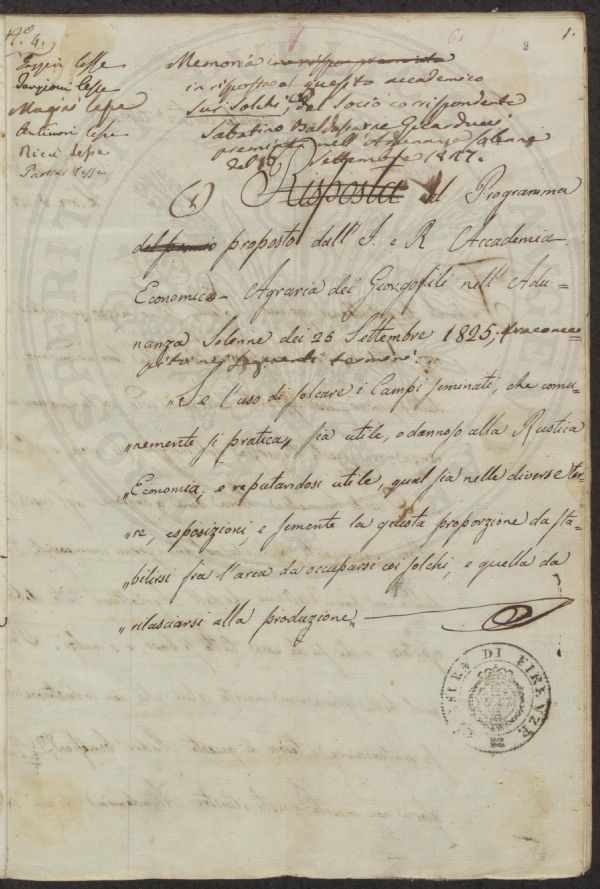 N.° 4.
1.
2
Targioni Lesse
Magini Lesse
Antinori Lesse
Ricci Lesse
Memoria
in risposta al quesito accademico
Sui Solchi, del Socio corrispondente
Sabatino Baldassarre Guarducci
premiata nell'Adunanza Solenne
del Settembre 1827.
Risposta al Programma
proposto dall'I. e R. Accademia
Economico-Agraria dei Georgofili nell'Adu-
nanza Solenne dei 25 Settembre 1825,
nei seguenti termini:
„Se l'uso di solcare i Campi seminati, che comu-
„nemente si pratica, sia utile, o dannoso alla Rustica
„Economia; e reputandosi utile, qual sia nelle diverse ter-
„re, esposizioni, e semente la giusta proporzione da sta-
„bilirsi fra l'area da occuparsi coi solchi, e quella da
„rilasciarsi alla produzione„